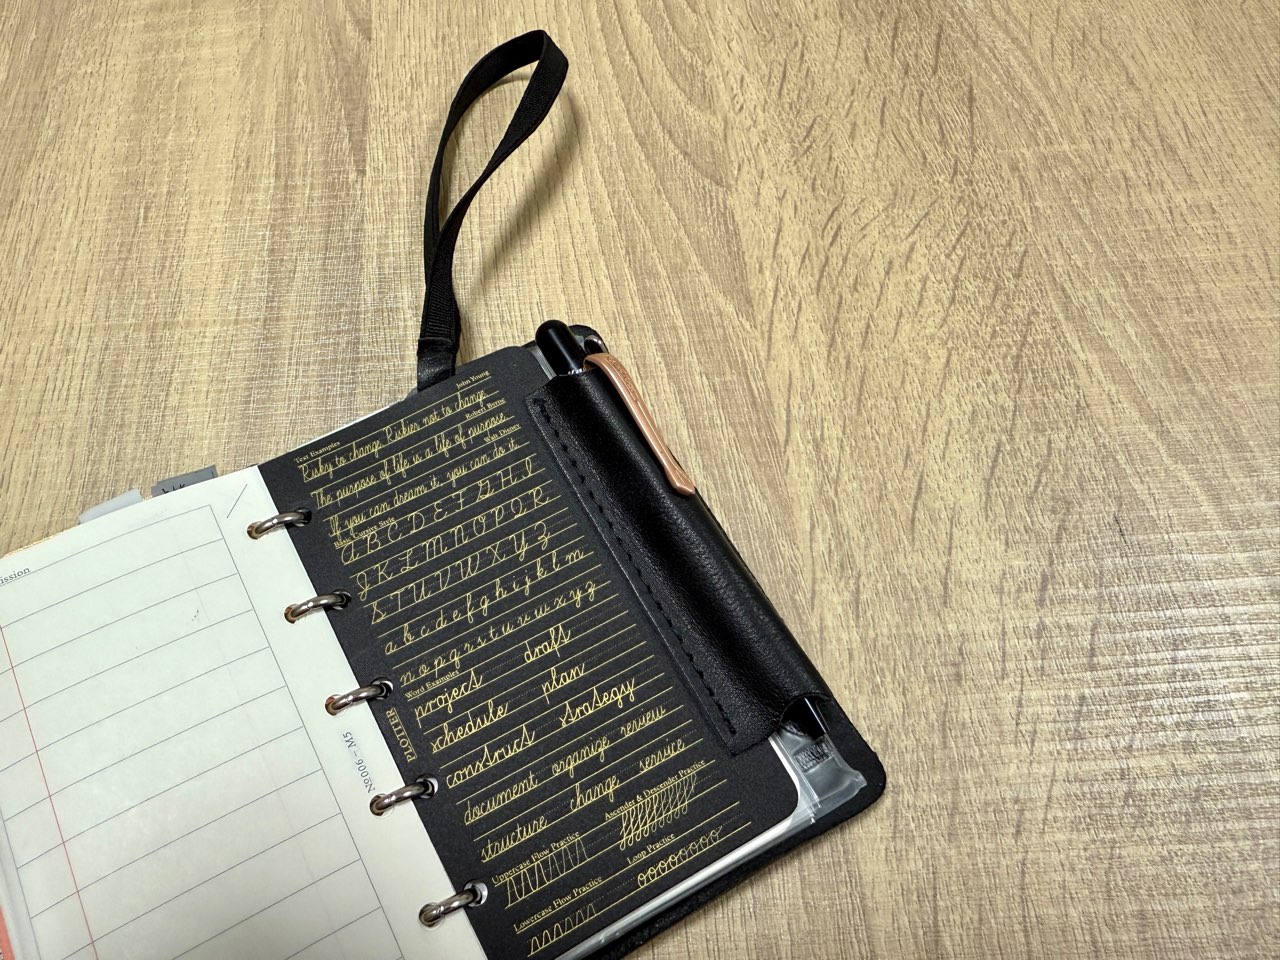 ission
Nº006 – M5
PLOTTER
Text Examples
John Young
Risky to change. Riskier not to change.
Robert Byrne
The purpose of life is a life of purpose.
Walt Disney
If you can dream it, you can do it.
Basic Cursive Style
A B C D E F G H I
J K L M N O P Q R
S T U V W X Y Z
a b c d e f g h i j k l m
n o p q r s t u v w x y z
Word Examples
project draft
schedule plan
construct strategy
document organize review
structure change service
Uppercase Flow Practice
Ascender & Descender Practice
Lowercase Flow Practice
Loop Practice